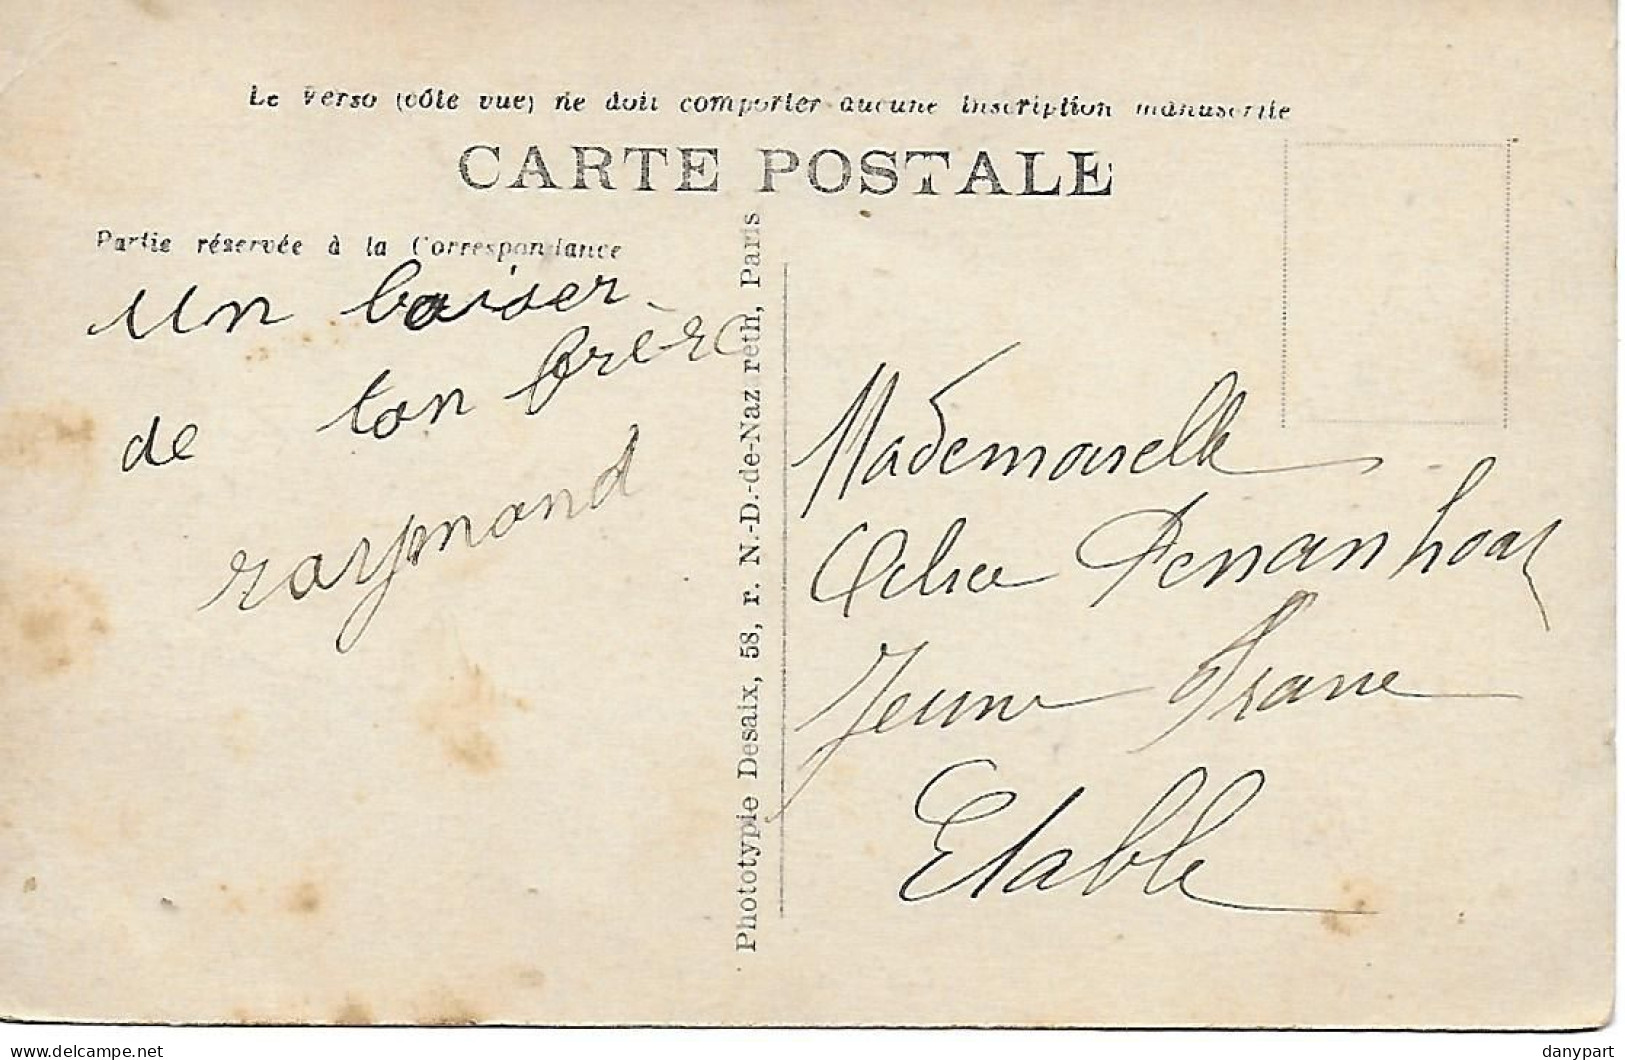 Le Verso (côté vue) ne doit comporter aucune inscription manuscrite
CARTE POSTALE
Partie réservée à la Correspondance
un baiser
de ton frère
raymond
Phototypie Desaix, 58, r. N.-D.-de-Nazareth, Paris
Mademoiselle
Penanhoat
Jeune
Etable
danypart